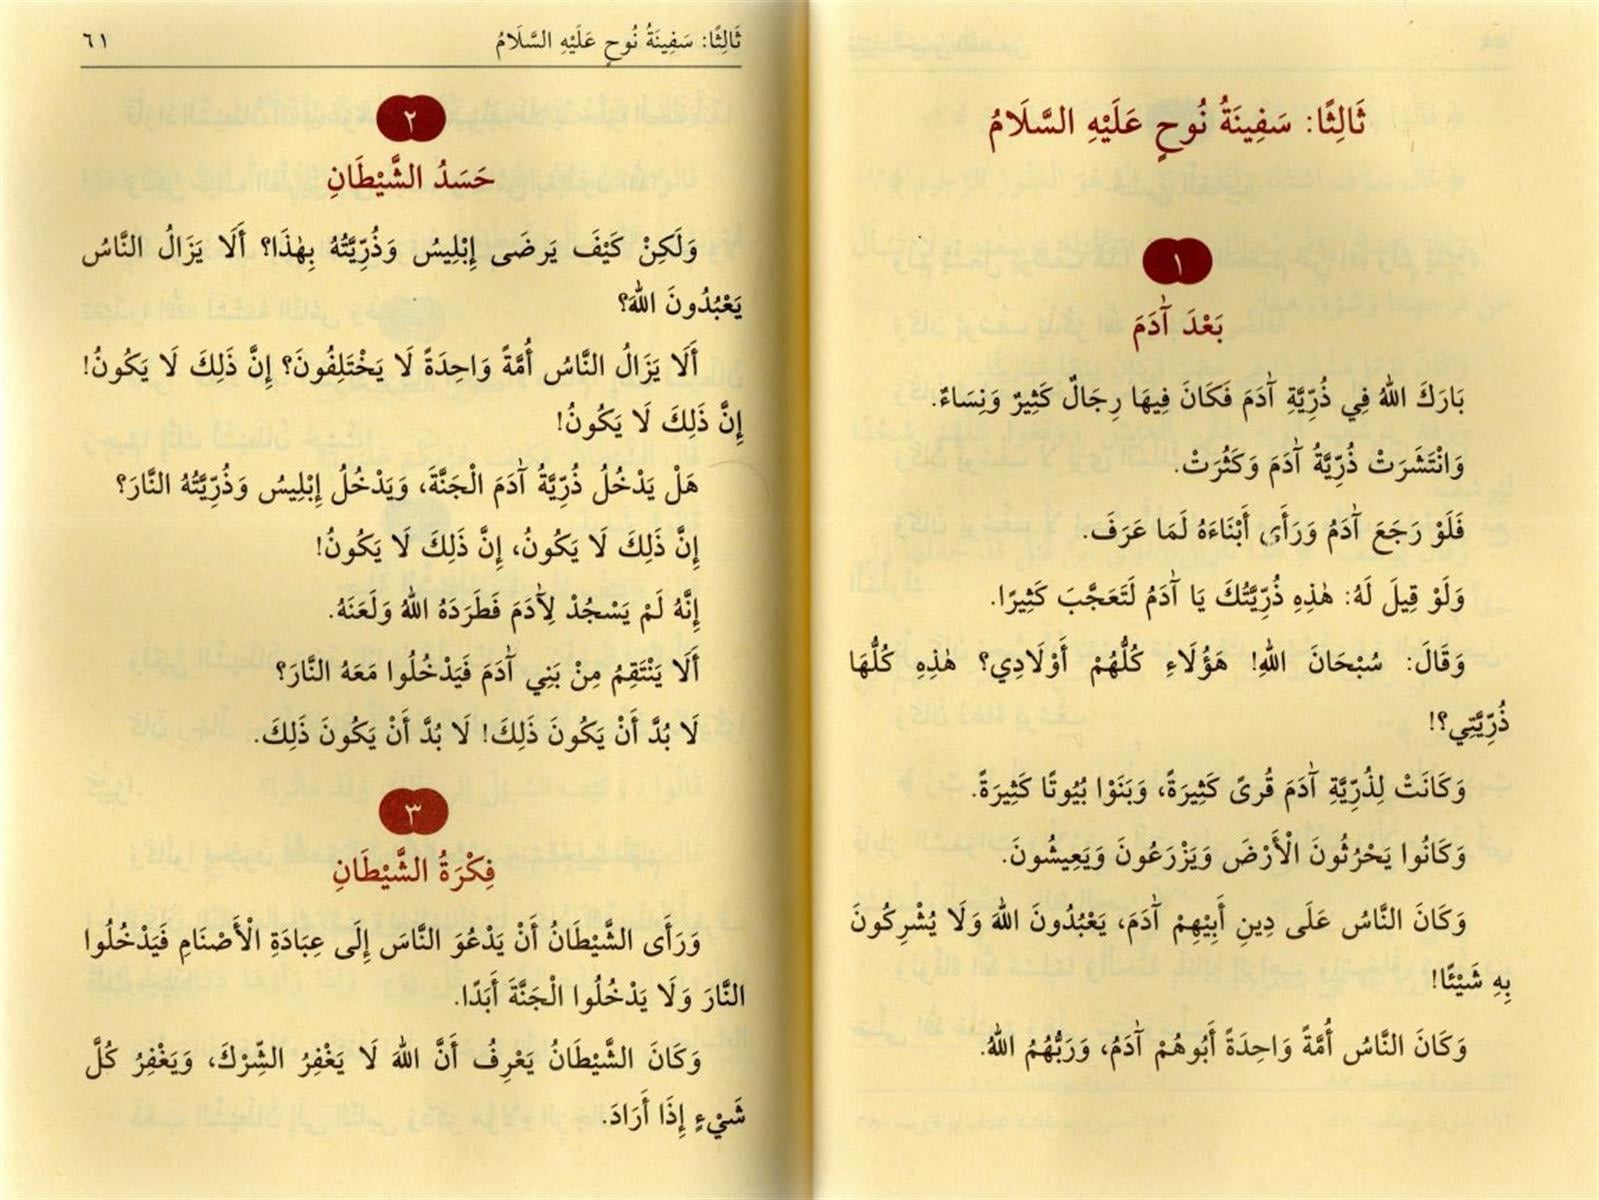 ثَالِثًا: سَفِينَةُ نُوحٍ عَلَيْهِ السَّلَامُ
١
بَعْدَ آدَمَ
بَارَكَ اللهُ فِي ذُرِّيَّةِ آدَمَ فَكَانَ فِيهَا رِجَالٌ كَثِيرٌ وَنِسَاءٌ.
وَانْتَشَرَتْ ذُرِّيَّةُ آدَمَ وَكَثُرَتْ.
فَلَوْ رَجَعَ آدَمُ وَرَأَى أَبْنَاءَهُ لَمَا عَرَفَ.
وَلَوْ قِيلَ لَهُ: هٰذِهِ ذُرِّيَّتُكَ يَا آدَمُ لَتَعَجَّبَ كَثِيرًا.
وَقَالَ: سُبْحَانَ اللهِ! هَؤُلَاءِ كُلُّهُمْ أَوْلَادِي؟ هٰذِهِ كُلُّهَا
ذُرِّيَّتِي؟!
وَكَانَتْ لِذُرِّيَّةِ آدَمَ قُرىً كَثِيرَةً، وَبَنَوْا بُيُوتًا كَثِيرَةً.
وَكَانُوا يَحْرُثُونَ الْأَرْضَ وَيَزْرَعُونَ وَيَعِيشُونَ.
وَكَانَ النَّاسُ عَلَى دِينِ أَبِيْهِمْ آدَمَ، يَعْبُدُونَ اللهَ وَلَا يُشْرِكُونَ
بِهِ شَيْئًا!
وَكَانَ النَّاسُ أُمَّةً وَاحِدَةً أَبُوهُمْ آدَمُ، وَرَبُّهُمُ اللهُ.
ثَالِثًا: سَفِينَةُ نُوحٍ عَلَيْهِ السَّلَامُ ٦١
٢
حَسَدُ الشَّيْطَانِ
وَلَكِنْ كَيْفَ يَرضَى إِبْلِيسُ وَذُرِّيَّتُهُ بِهٰذَا؟ أَلَا يَزَالُ النَّاسُ
يَعْبُدُونَ اللهَ؟
أَلَا يَزَالُ النَّاسُ أُمَّةً وَاحِدَةً لَا يَخْتَلِفُونَ؟ إِنَّ ذَلِكَ لَا يَكُونُ!
إِنَّ ذَلِكَ لَا يَكُونُ!
هَلْ يَدْخُلُ ذُرِّيَّةُ آدَمَ الْجَنَّةَ، وَيَدْخُلُ إِبْلِيسُ وَذُرِّيَّتُهُ النَّارَ؟
إِنَّ ذَلِكَ لَا يَكُونُ، إِنَّ ذَلِكَ لَا يَكُونُ!
إِنَّهُ لَمْ يَسْجُدْ لِآدَمَ فَطَرَدَهُ اللهُ وَلَعَنَهُ.
أَلَا يَنْتَقِمُ مِنْ بَنِي آدَمَ فَيَدْخُلُوا مَعَهُ النَّارَ؟
لَا بُدَّ أَنْ يَكُونَ ذَلِكَ! لَا بُدَّ أَنْ يَكُونَ ذَلِكَ.
٣
فِكْرَةُ الشَّيْطَانِ
وَرَأَى الشَّيْطَانُ أَنْ يَدْعُوَ النَّاسَ إِلَى عِبَادَةِ الْأَصْنَامِ فَيَدْخُلُوا
النَّارَ وَلَا يَدْخُلُوا الْجَنَّةَ أَبَدًا.
وَكَانَ الشَّيْطَانُ يَعْرِفُ أَنَّ اللهَ لَا يَغْفِرُ الشِّرْكَ، وَيَغْفِرُ كُلَّ
شَيْءٍ إِذَا أَرَادَ.